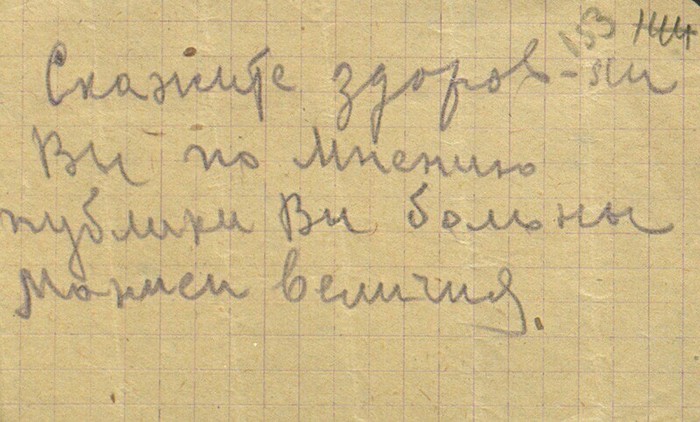 153
Скажите здоров-ли
Вы по мнению
публики Вы больны
манией величия.